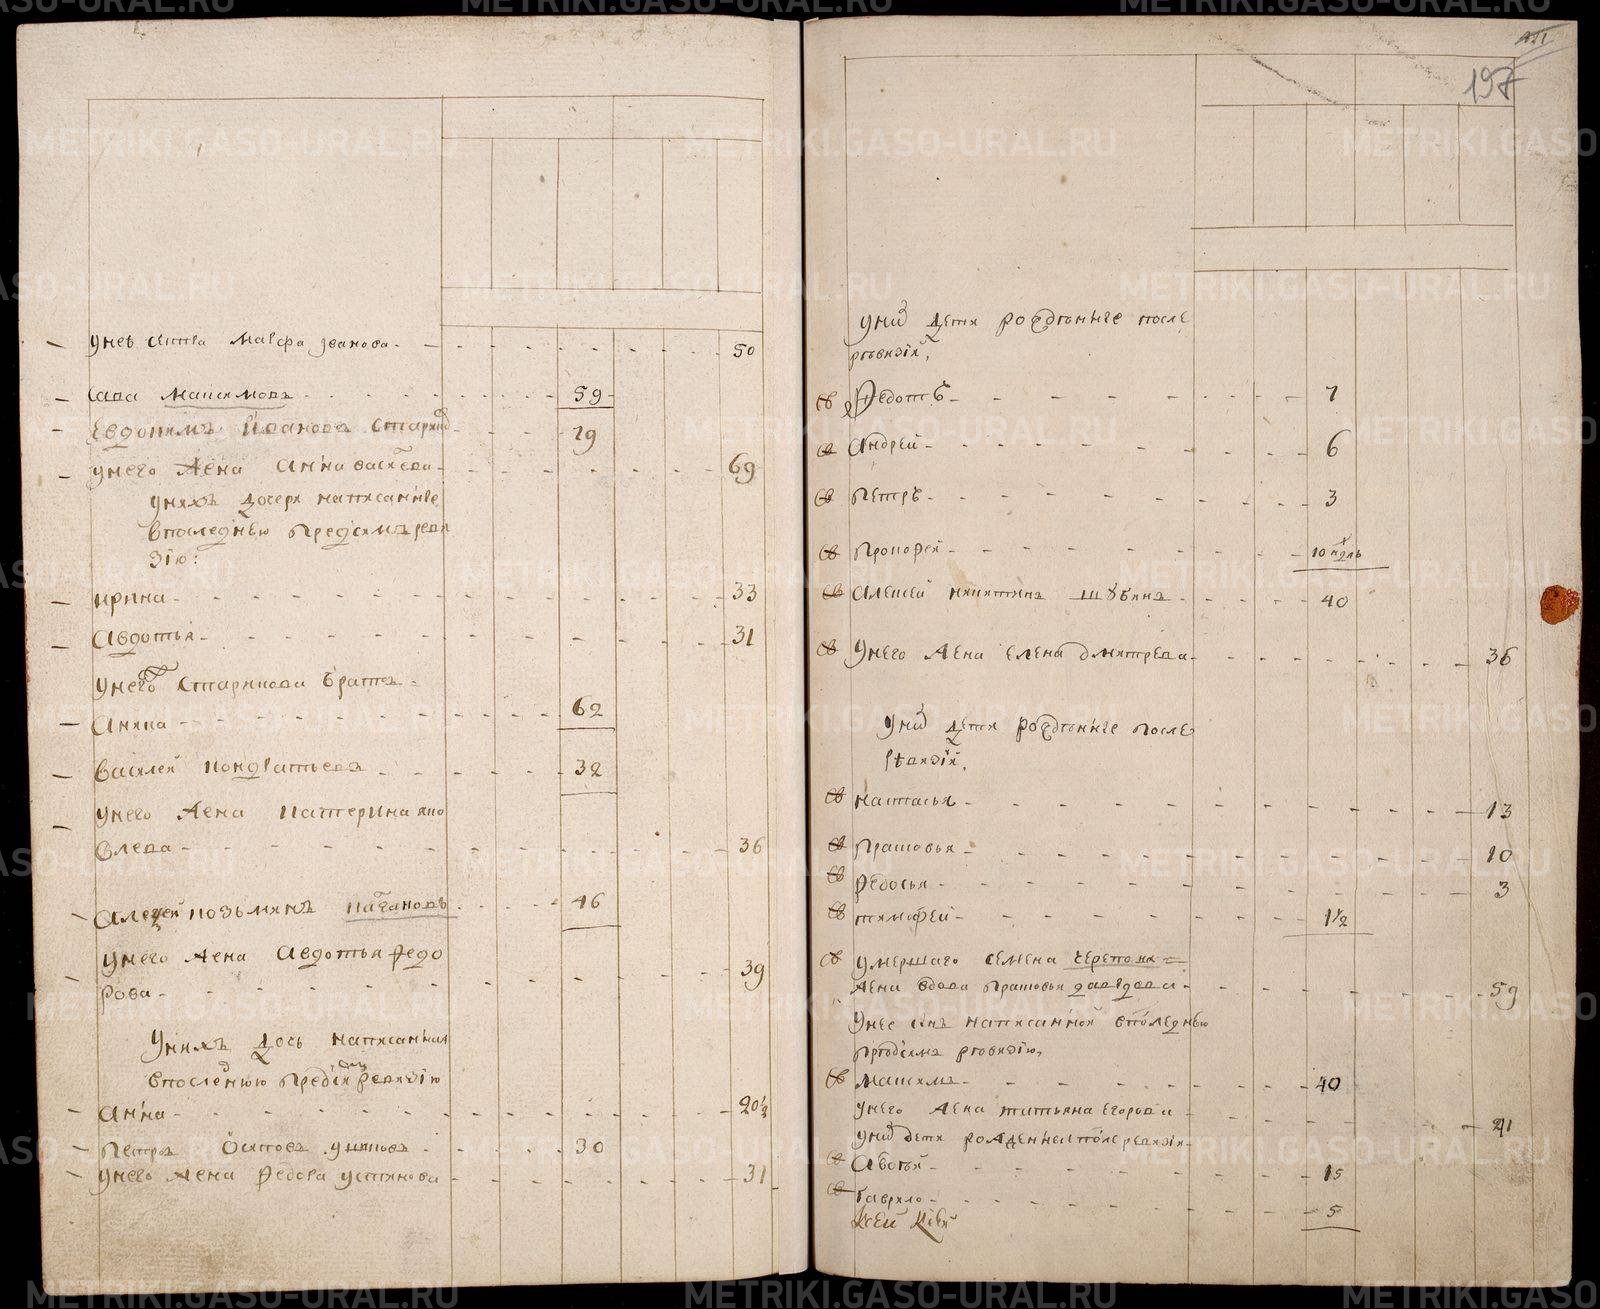 унеѣ сестра марфа иванова 50
сава максимовъ 59
Евдокимъ Ивановъ стариков 29
унего жена анна васильева 69
унихъ дочери написанные
впоследнею предсимъ реви
зїю:
ирина 33
авдотья 31
унего старикова братъ
аника 62
василеи кондратьевъ 32
унего жена катерина яко
влева 36
алеѯеи козьминъ кабановъ 46
унего жена авдотья федо
рова 39
унихъ дочь написанная
впоследнюю предсим ревизїю
анна 20 1/2
петръ осиповъ 30
унего жена федора устинова 31
197
уних дети рожденные после
ревизїи,
св Федотъ 7
св андреи 6
св петръ 3
св прокофеи 10 ндль
св алексеи никитинъ шубинъ 40
св унего жена елена дмитрева 36
уних дети рожденные после
ревизїи,
св наталья 13
св прасковья 10
св федосья 3
св тимофеи 1 1/2
св умершаго семена
жена вдова прасковья давыдова 59
унее сынъ написанной впоследнею
предсимъ ревизїю,
св максимъ 40
унего жена татьяна егорова 41
уних дети рожденные после ревизїи
св 15
св гаврило 5